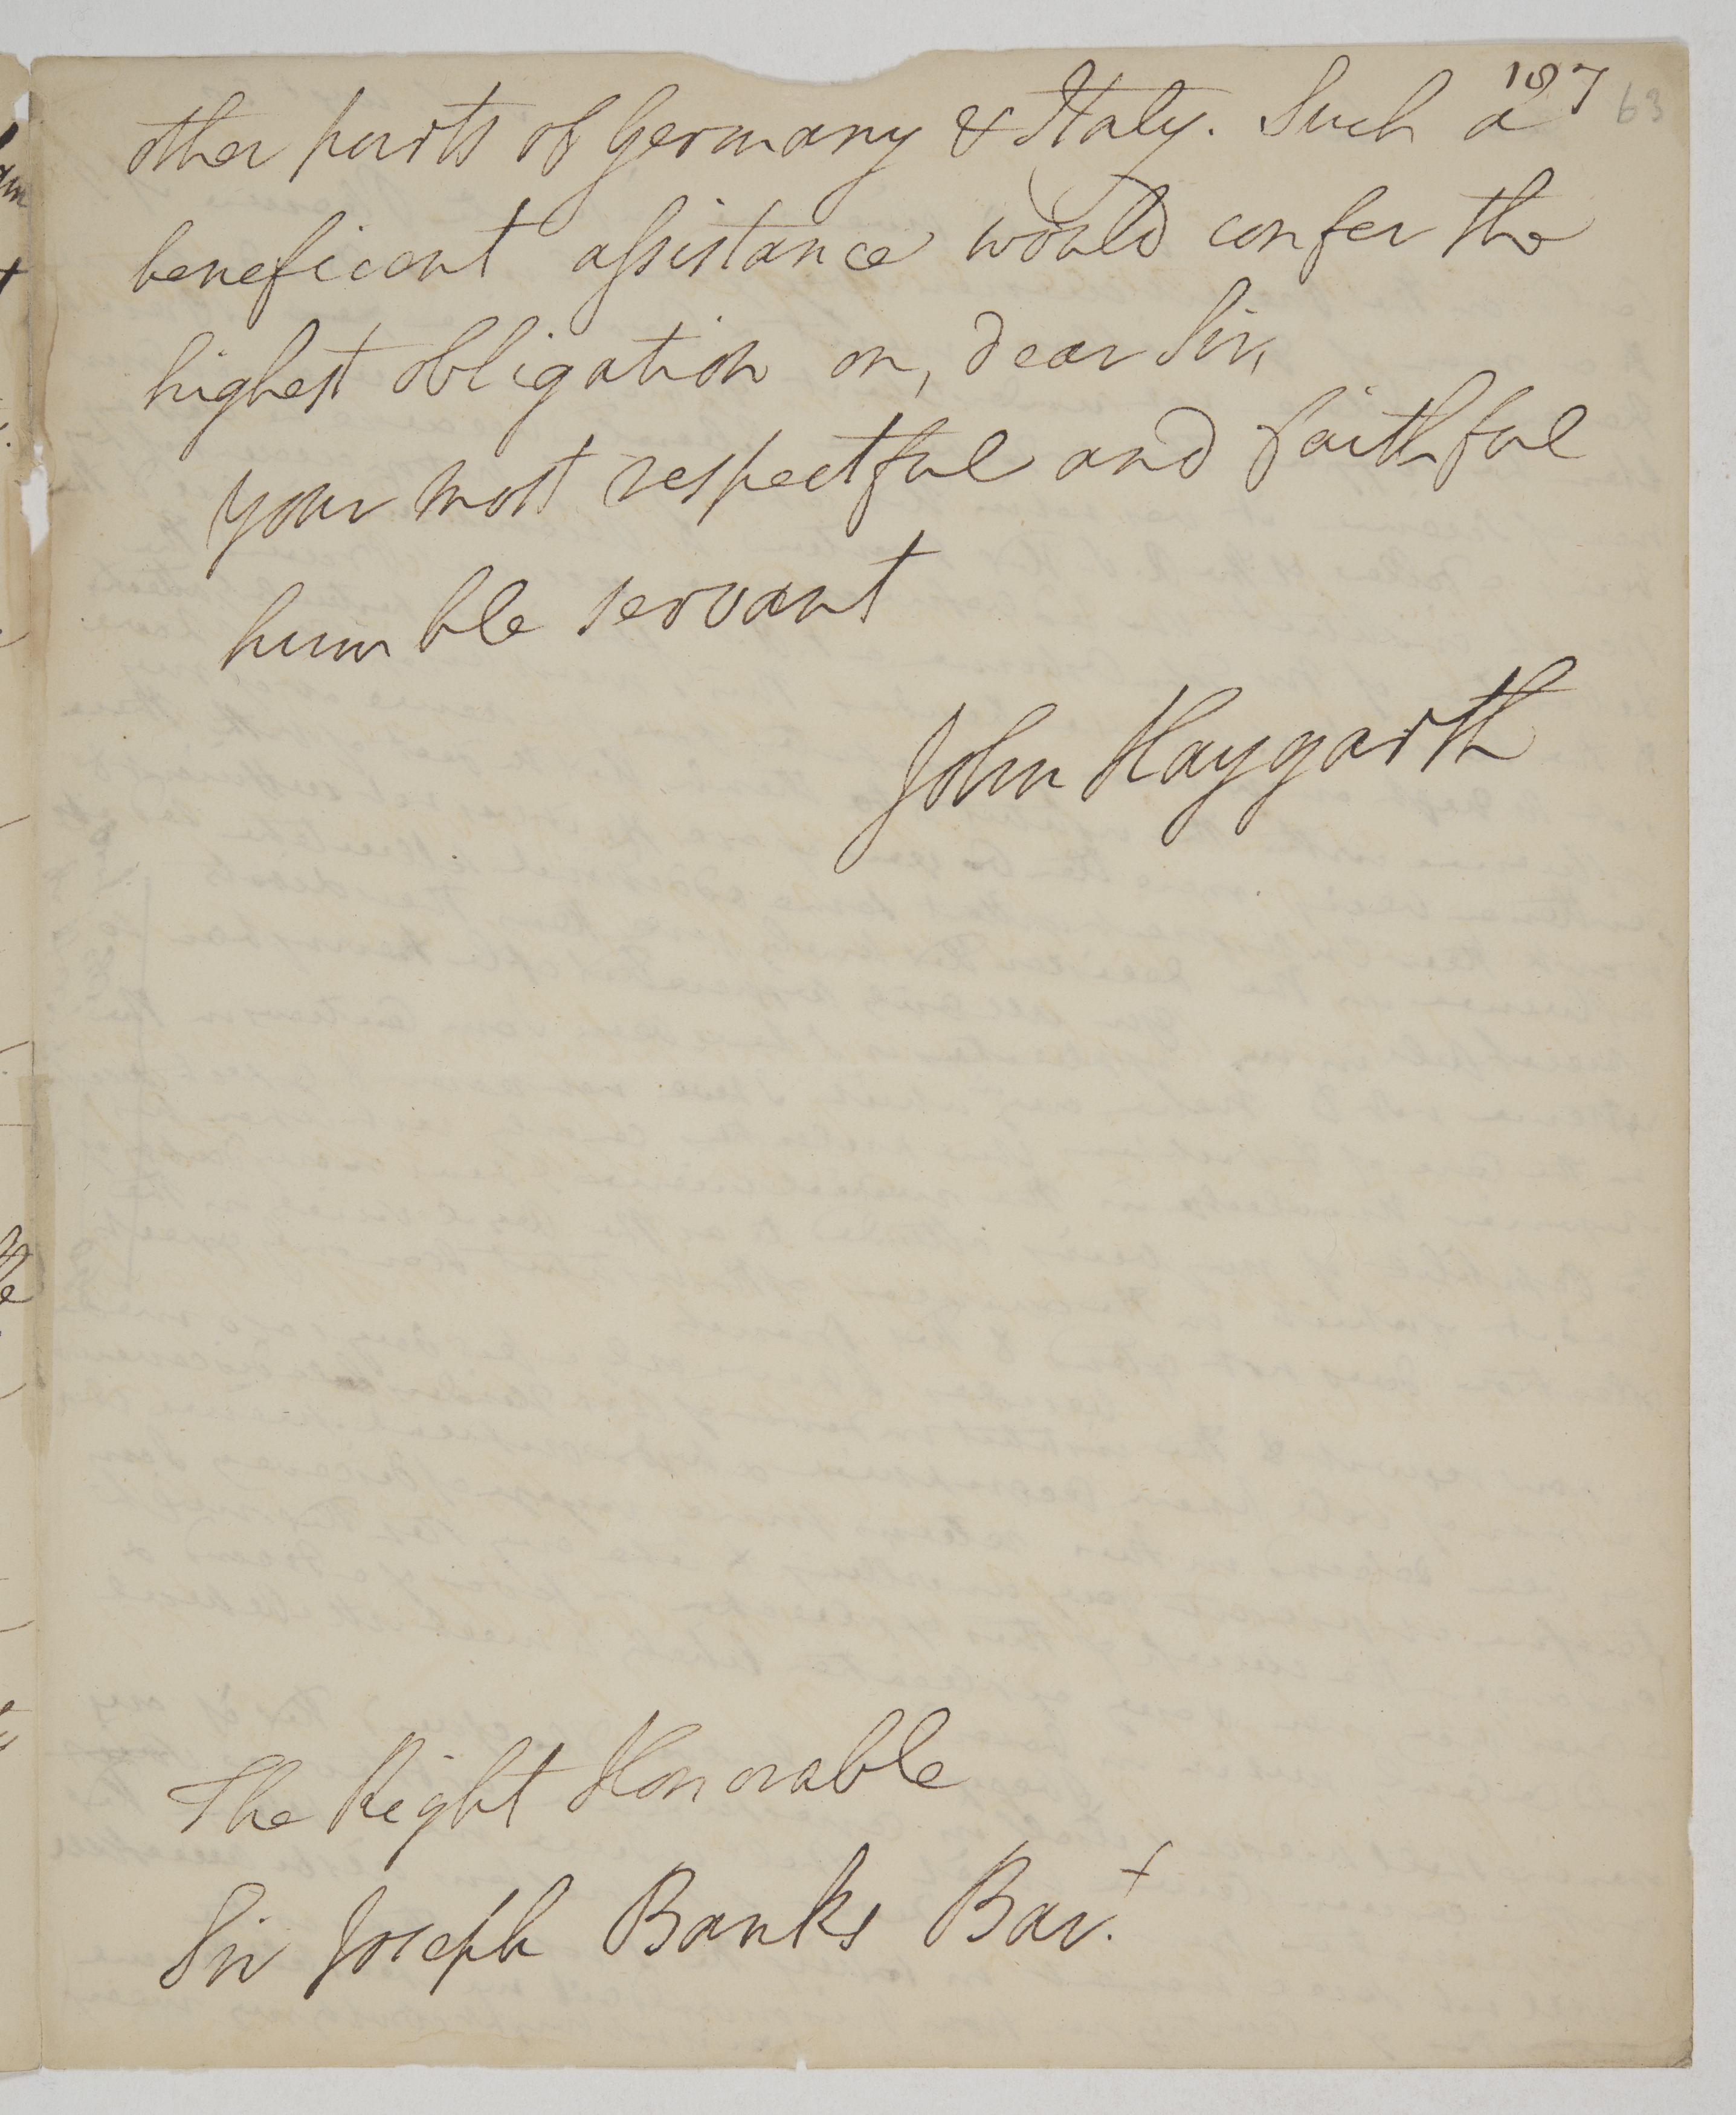 187
63
other parts of Germany & Italy. Such a
beneficent assistance would confer the
highest obligation on, dear Sir,
your most respectful and faithful
humble servant
John Haygarth
The Right Honorable
Sir Joseph Banks Bar.t